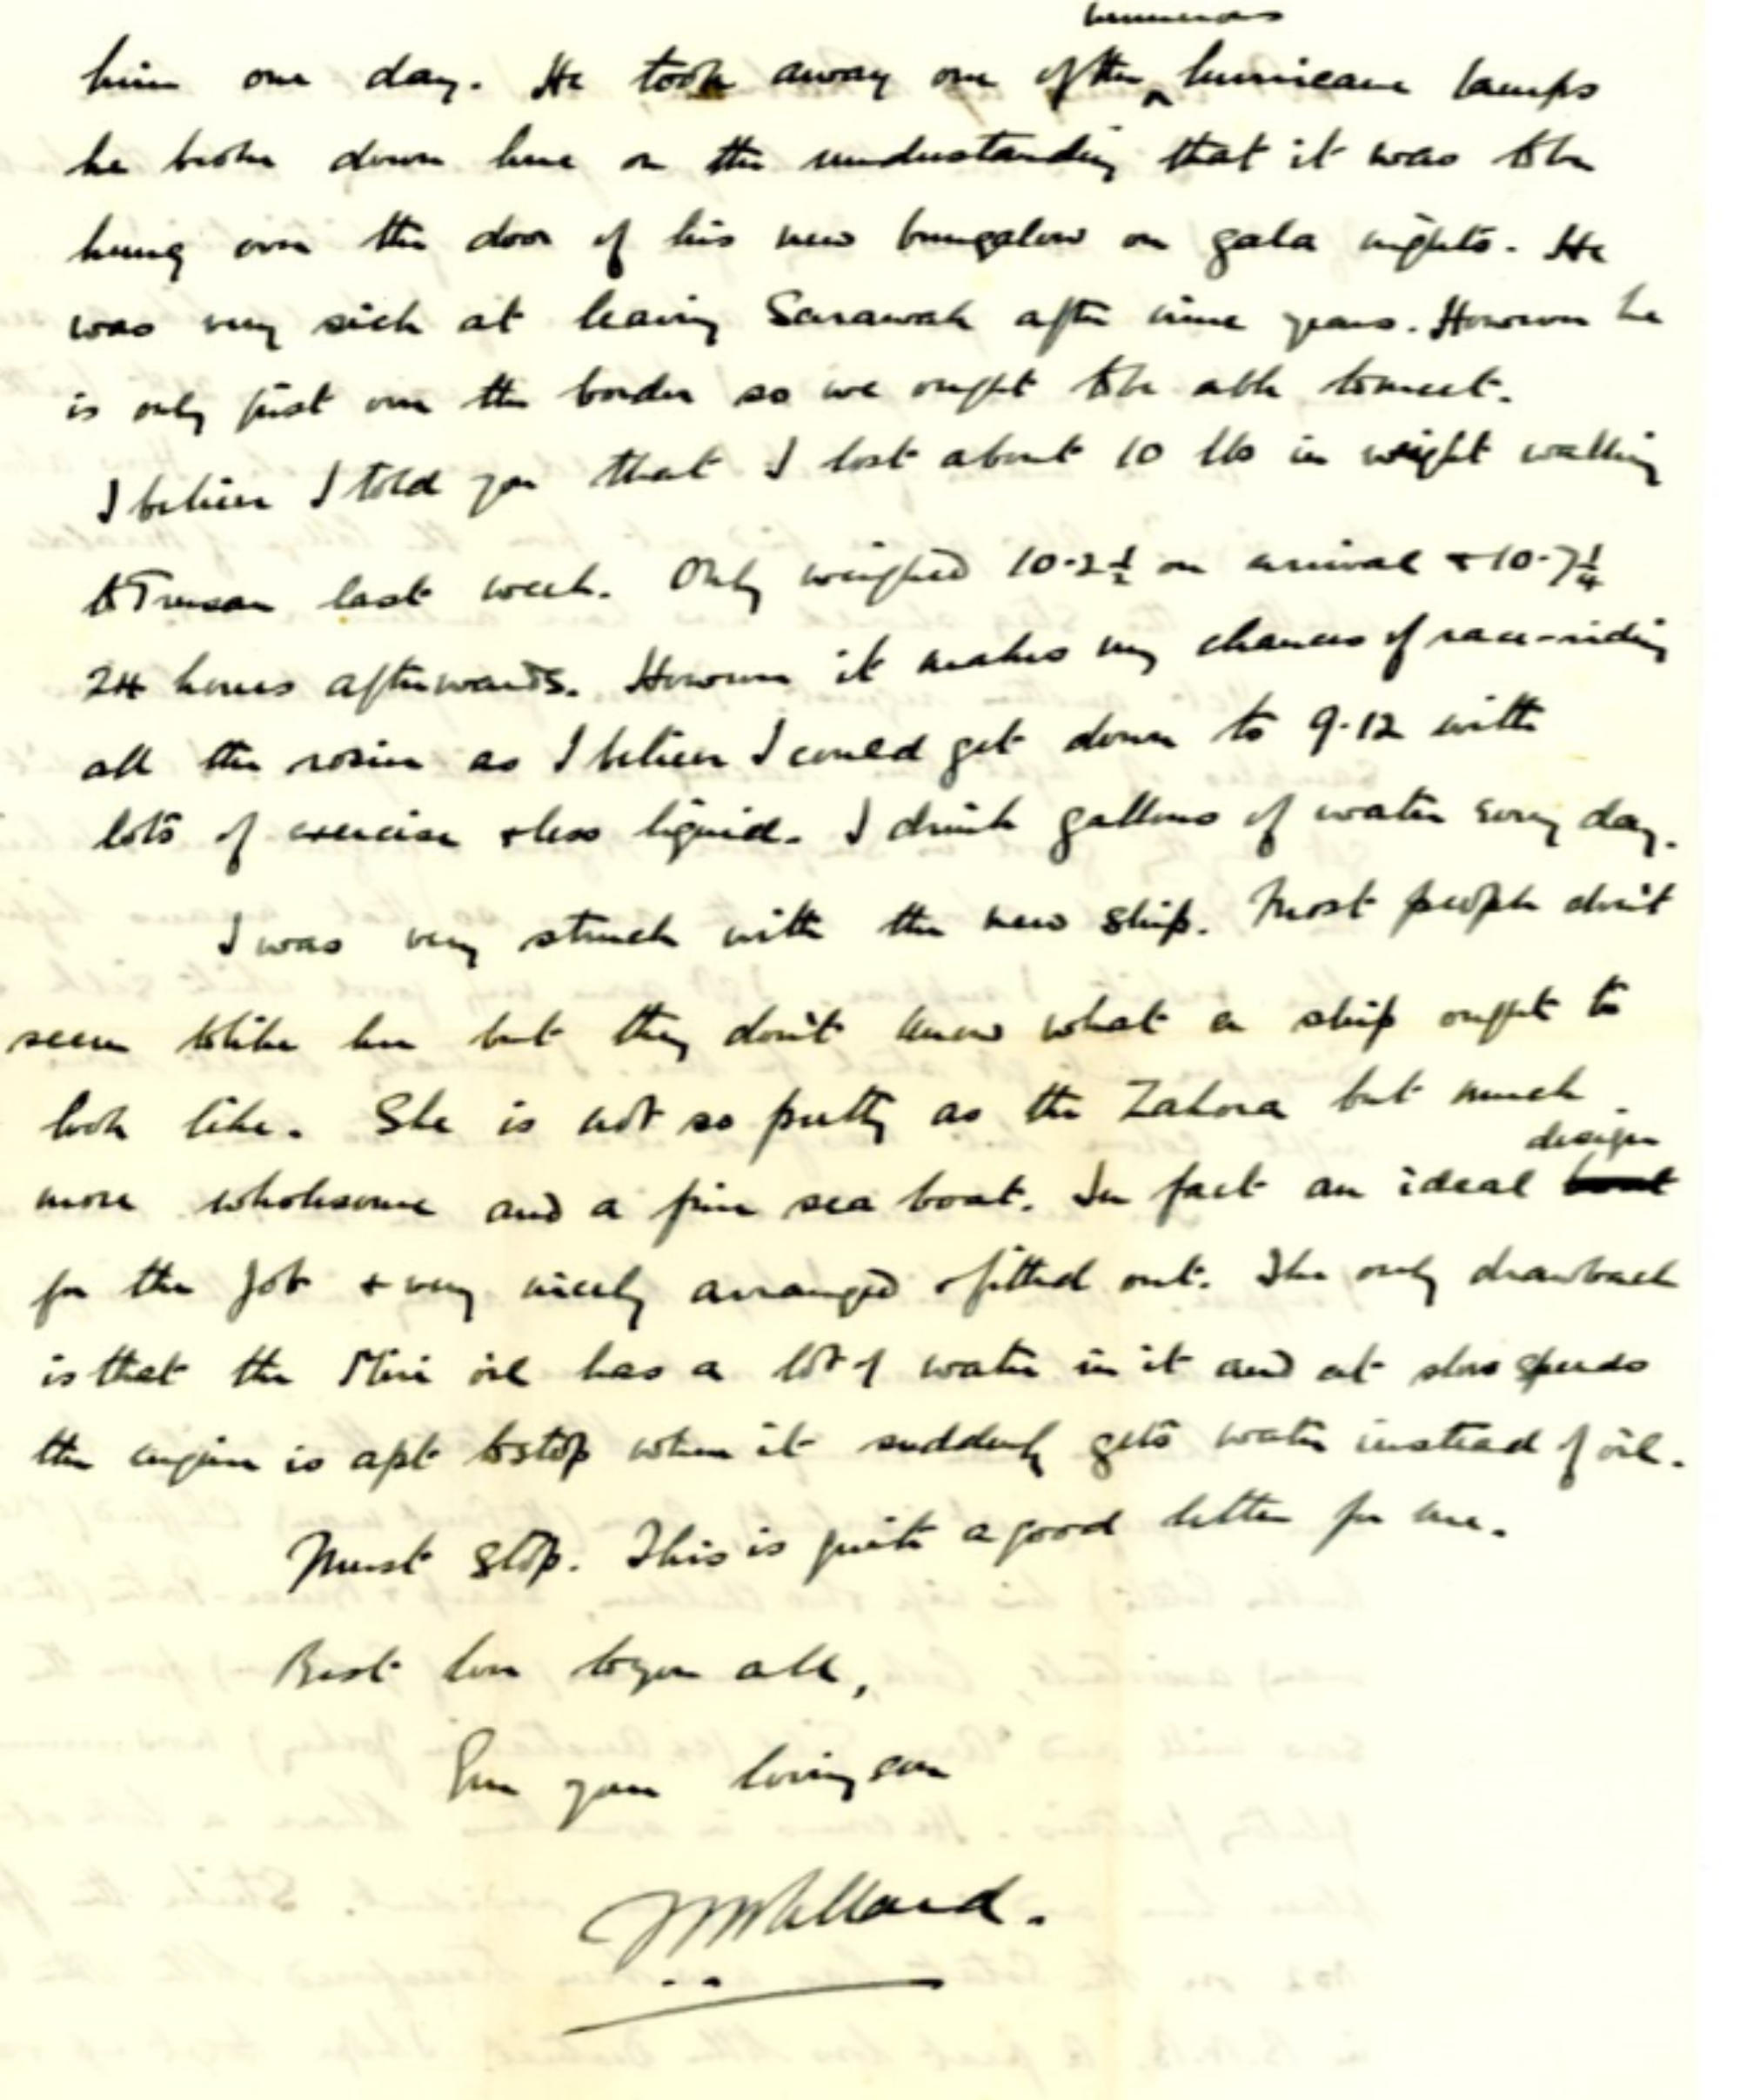 numerous
him one day. He took away one of the ^ hurricane lamps
he broke down here on the understanding that it was to be
hung over the door of his new bungalow on gala nights. He
was very sick at leaving Sarawak after nine years. However he
is only just over the border so we ought to be able to meet.
I believe I told you that I lost about 10 lbs in weight walking
to Trusan last week. Only weighed 10·2½ on arrival + 10·7¼
24 hours afterwards. However it makes my chances of race-riding
all the rosier as I believe I could get down to 9·12 with
lots of exercise + less liquid. I drink gallons of water every day.
I was very struck with the new ship. Most people don't
seem to like her but they don't know what a ship ought to
look like. She is not so pretty as the Zahora but much
design
more wholesome and a fine sea boat. In fact an ideal boat
for the job + very nicely arranged + fitted out. The only drawback
is that the Miri oil has a lot of water in it and at slow speeds
the engine is apt to stop when it suddenly gets water instead of oil.
Must stop. This is quite a good letter for me.
Best love to you all,
Ever your loving son